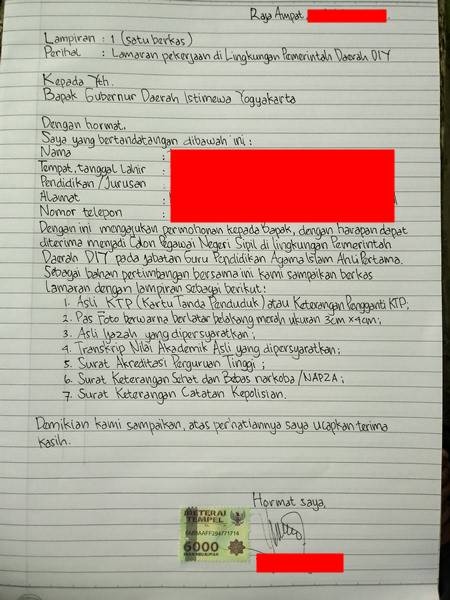 Raja Ampat,
Lampiran : 1 (satu berkas)
Perihal : Lamaran pekerjaan di Lingkungan Pemerintah Daerah DIY
Kepada Yth.
Bapak Gubernur Daerah Istimewa Yogyakarta
Dengan hormat.
Saya yang bertandatangan dibawah ini :
Nama :
Tempat, tanggal Lahir :
Pendidikan / Jurusan :
Alamat :
Nomor telepon :
Dengan ini mengajukan permohonan kepada Bapak, dengan harapan dapat
diterima menjadi Calon Pegawai Negeri Sipil di lingkungan Pemerintah
Daerah DIY pada jabatan Guru Pendidikan Agama Islam Ahli Pertama.
Sebagai bahan pertimbangan bersama ini kami sampaikan berkas
lamaran dengan lampiran sebagai berikut:
1. Asli KTP (Kartu Tanda Penduduk) atau Keterangan Pengganti KTP;
2. Pas Foto berwarna berlatar belakang merah ukuran 3cm x 4cm;
3. Asli Ijazah yang dipersyaratkan;
4. Transkrip Nilai Akademik Asli yang dipersyaratkan;
5. Surat Akreditasi Perguruan Tinggi;
6. Surat Keterangan Sehat dan Bebas narkoba / NAPZA;
7. Surat Keterangan Catatan Kepolisian.
Demikian kami sampaikan, atas perhatiannya saya ucapkan terima
kasih.
Hormat saya,
METERAI
TEMPEL
6000